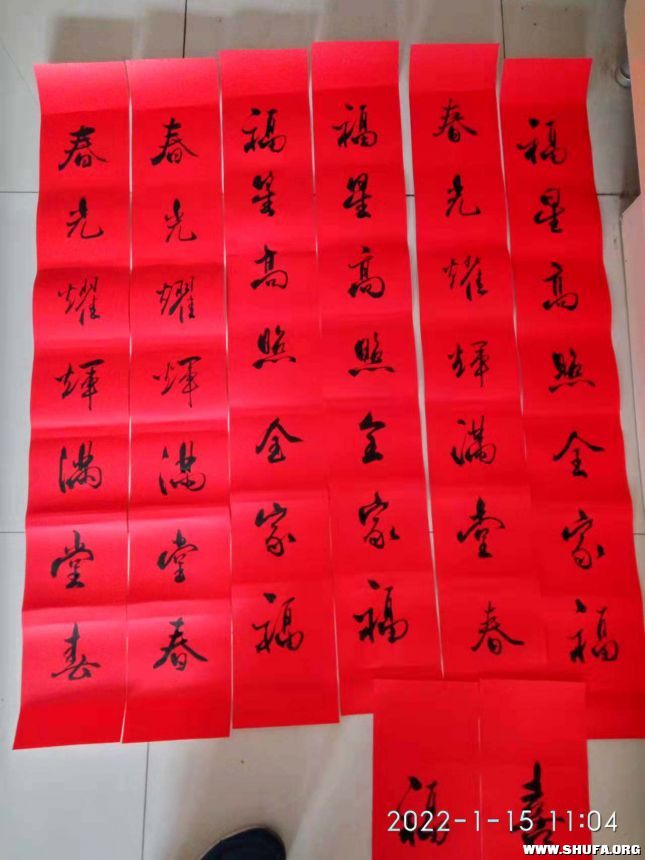 福星高照全家福
春光耀輝满堂春
福星高照全家福
福星高照全家福
春光耀輝满堂春
春光耀輝满堂春
喜
福
2022-1-15 11:04
WWW.SHUFA.ORG